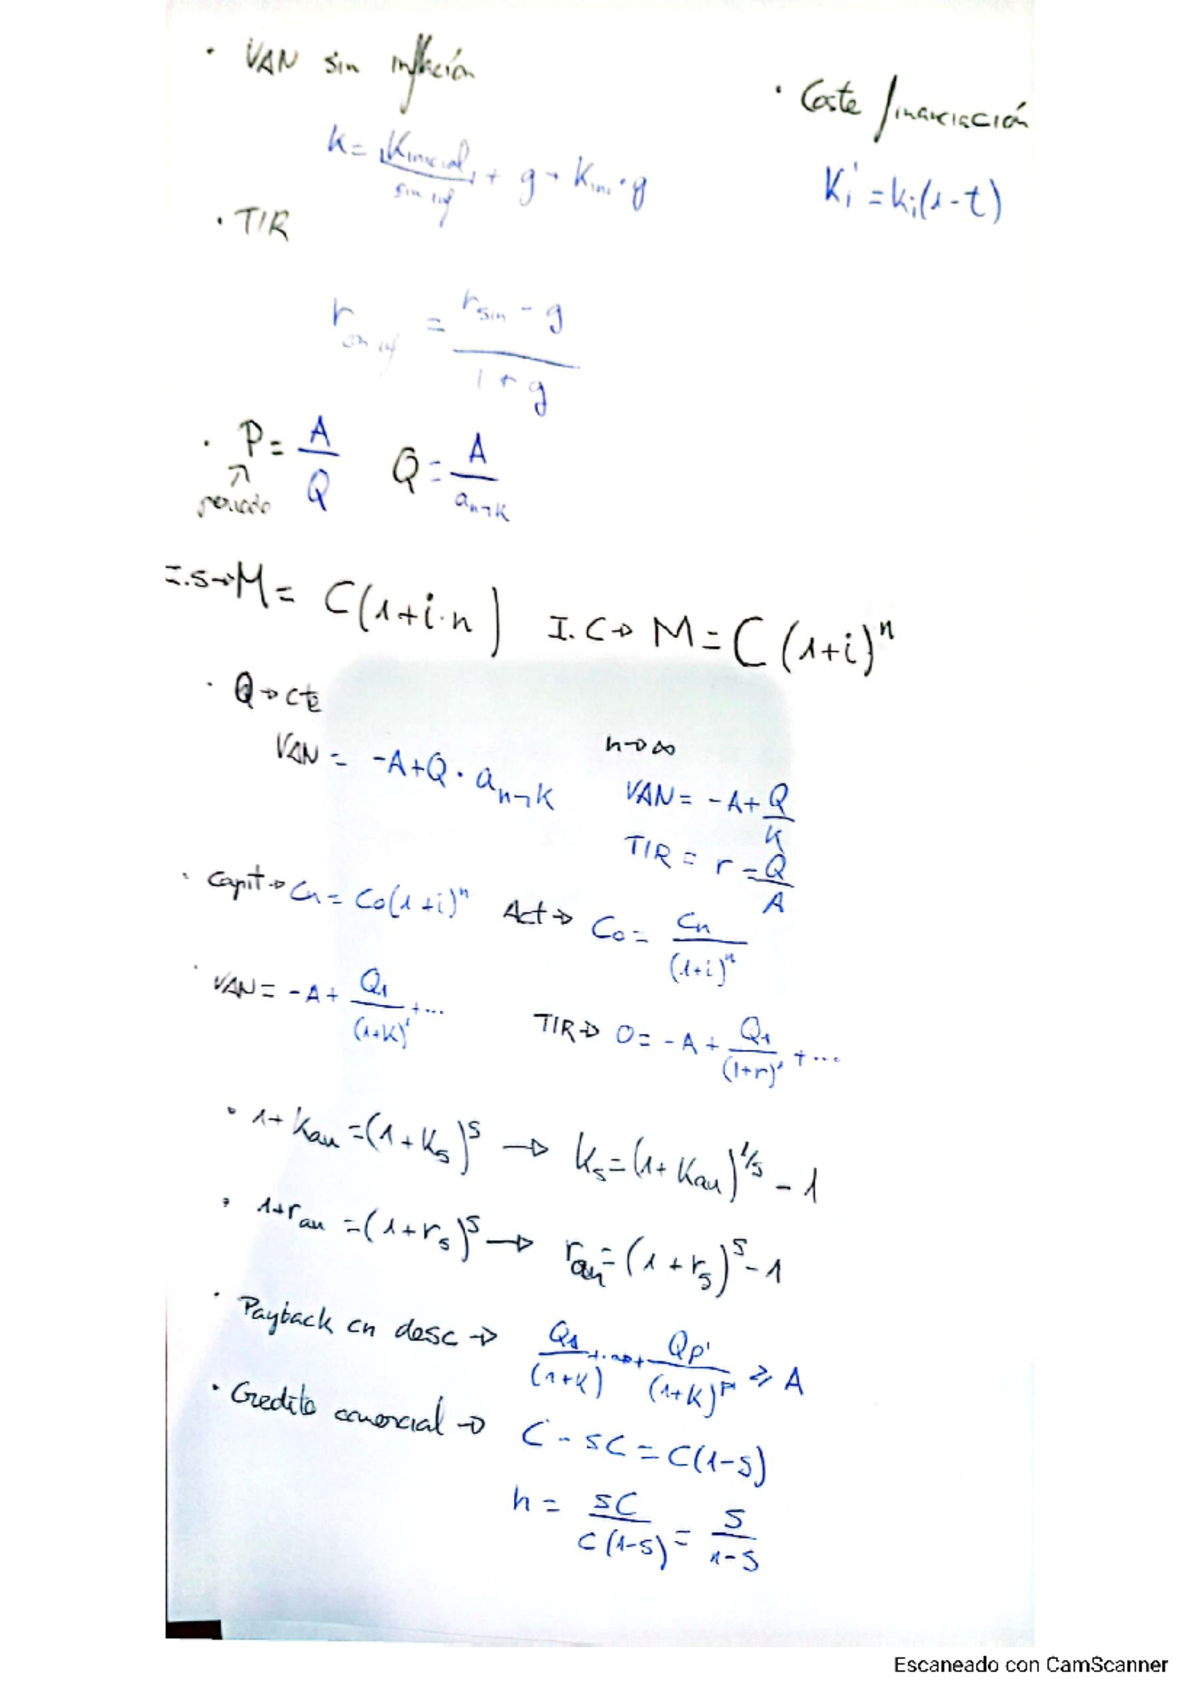 · VAN sin inflación
· Coste financiación
k = Kinicial sin inf + g + Kini · g
Ki' = ki(1-t)
· TIR
r sin inf = rsin - g / 1 + g
· P = A/Q Q = A/an¬K
periodo
I.S → M = C(1+i·n) I.C → M = C(1+i)^n
· Q → cte
VAN = -A+Q · an¬K
n → ∞
VAN = -A + Q/K
TIR = r = Q/A
· Capit → Cn = Co(1+i)^n Act → Co = Cn/(1+i)^n
· VAN = -A + Q1/(1+K)^1 + ...
TIR → O = -A + Q1/(1+r)^1 + ...
· 1+Kan = (1+Ks)^s → Ks = (1+Kan)^1/s - 1
· 1+ran = (1+rs)^s → ran = (1+rs)^s - 1
· Payback cn desc → Q1/(1+K) + ... + Qp'/(1+K)^p' ≥ A
· Credito comercial → C - sC = C(1-s)
h = sC/C(1-s) = s/1-s
Escaneado con CamScanner